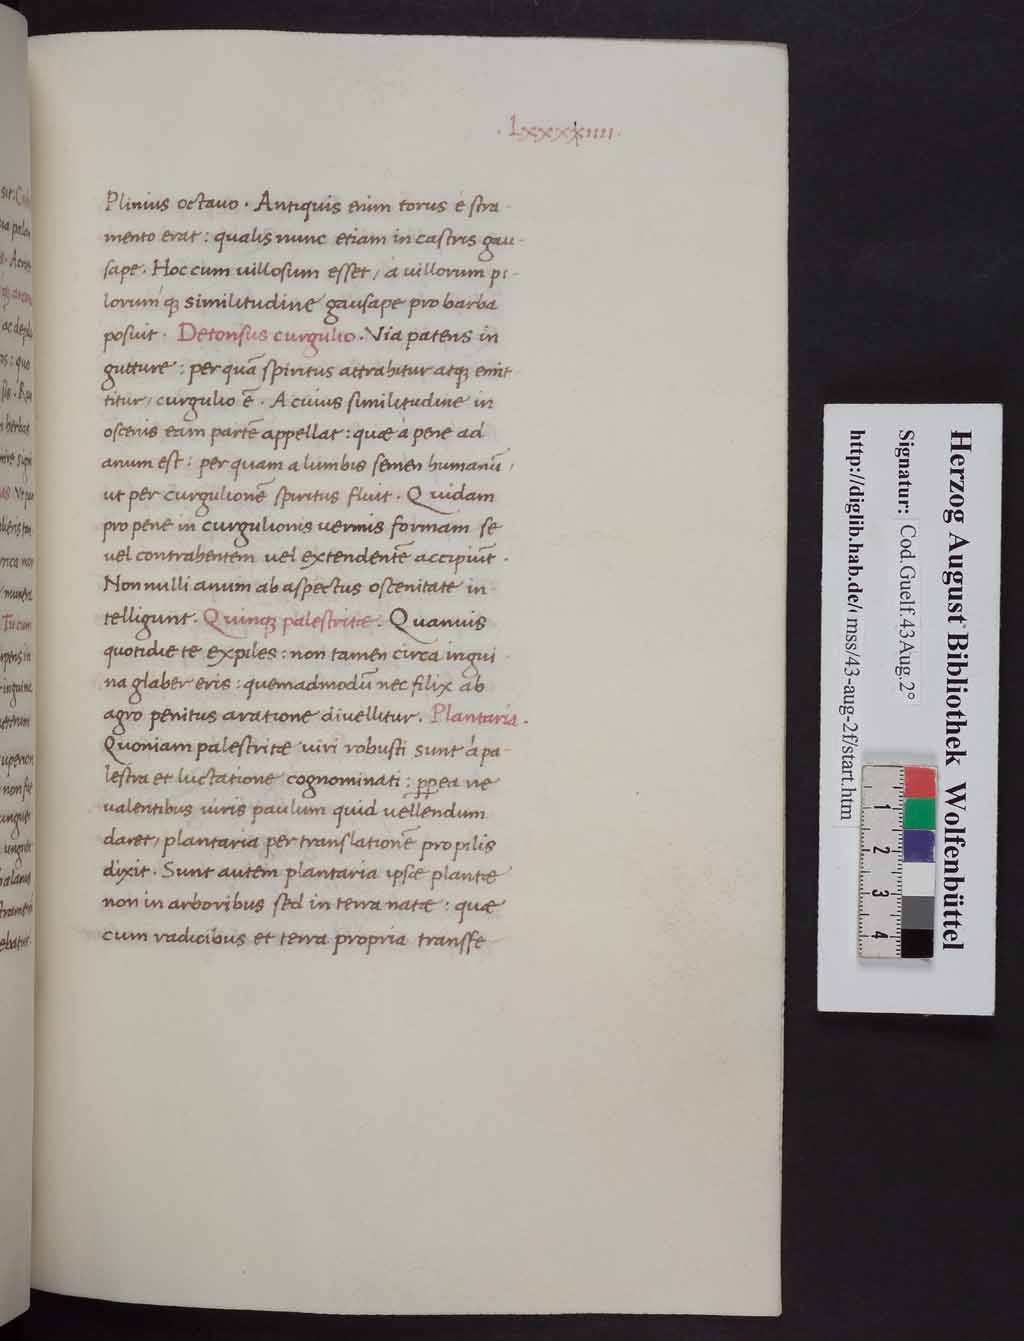 · Lxxxxiiii ·
Plinius octauo · Antiquis enim torus é stra-
mento erat : qualis nunc etiam in castris gau-
sape · Hoc cum uillosum esset / á uillorum pi-
lorum'q; similitudine gausape pro barba
posuit · Detonsus curgulio · Via patens in
gutture : per quã spiritus attrahitur atq; emit-
titur / curgulio ẽ · A cuius similitudine in
oscenis eam partẽ appellat : quæ á pene ad
anum est : per quam a lumbis semen humanũ /
ut per curgulionẽ spiritus fluit · Quidam
pro pene in curgulionis uermis formam se
uel contrahentem uel extendentẽ accipiũt ·
Non nulli anum ab aspectus oscenitate in-
telligunt · Quinq; palestritæ · Quanuis
quotidie te expiles : non tamen circa ingui-
na glaber eris : quemadmodũ nec filix ab
agro penitus aratione diuellitur · Plantaria ·
Quoniam palestritæ uiri robusti sunt á pa-
lestra et luctatione cognominati : ꝓꝑea ne
ualentibus uiris paulum quid uellendum
daret / plantaria per translationẽ pro pilis
dixit · Sunt autem plantaria ipsæ plantæ
non in arboribus sed in terra natæ : quæ
cum radicibus et terra propria transfe-
Herzog August Bibliothek Wolfenbüttel
Signatur: Cod.Guelf.43 Aug.2°
http://diglib.hab.de/ mss/43-aug-2f/start.htm
1 2 3 4